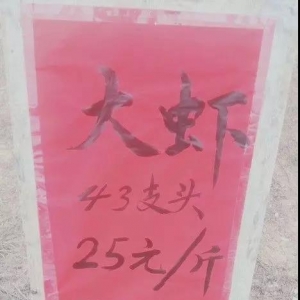 大虾
43支头
25元/斤